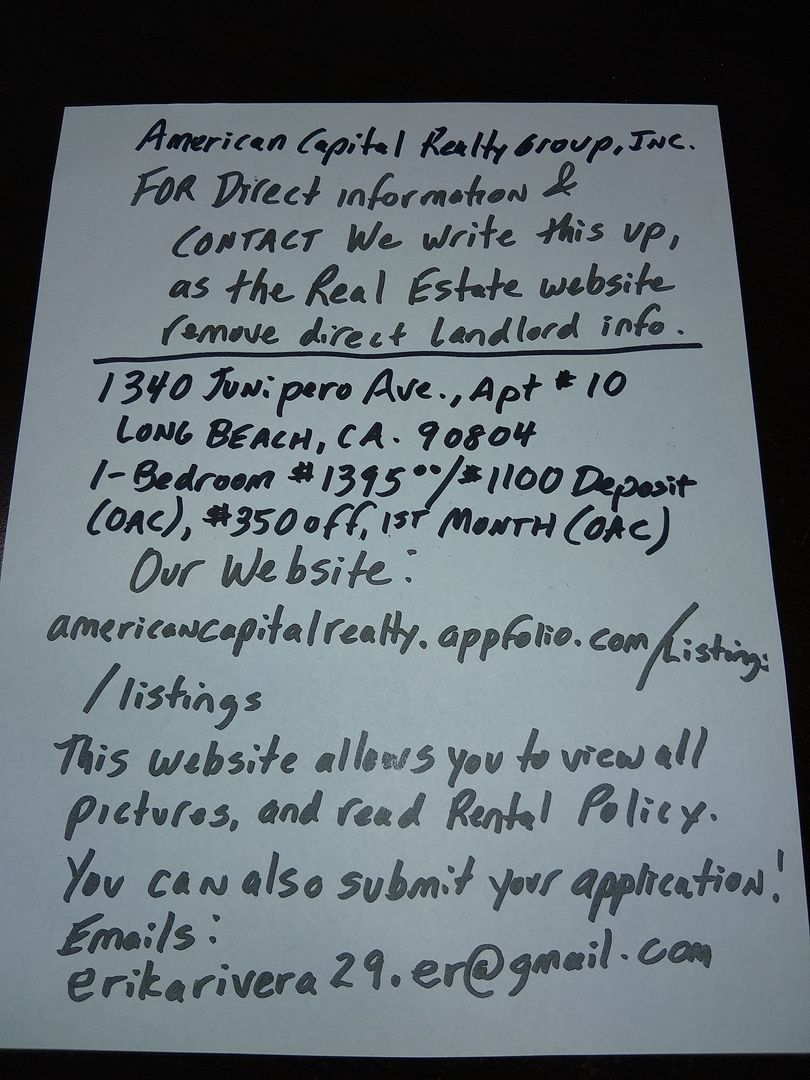 American Capital Realty Group, INC.
FOR Direct information &
CONTACT We write this up,
as the Real Estate website
remove direct Landlord info.
1340 Junipero Ave., Apt # 10
LONG BEACH, CA. 90804
1-Bedroom $1395⁰⁰/$1100 Deposit
(OAC), $350 off, 1ST MONTH (OAC)
Our Website:
americancapitalrealty.appfolio.com/Listings
/listings
This website allows you to view all
pictures, and read Rental Policy.
You can also submit your application!
Emails:
erikarivera29.er@gmail.com